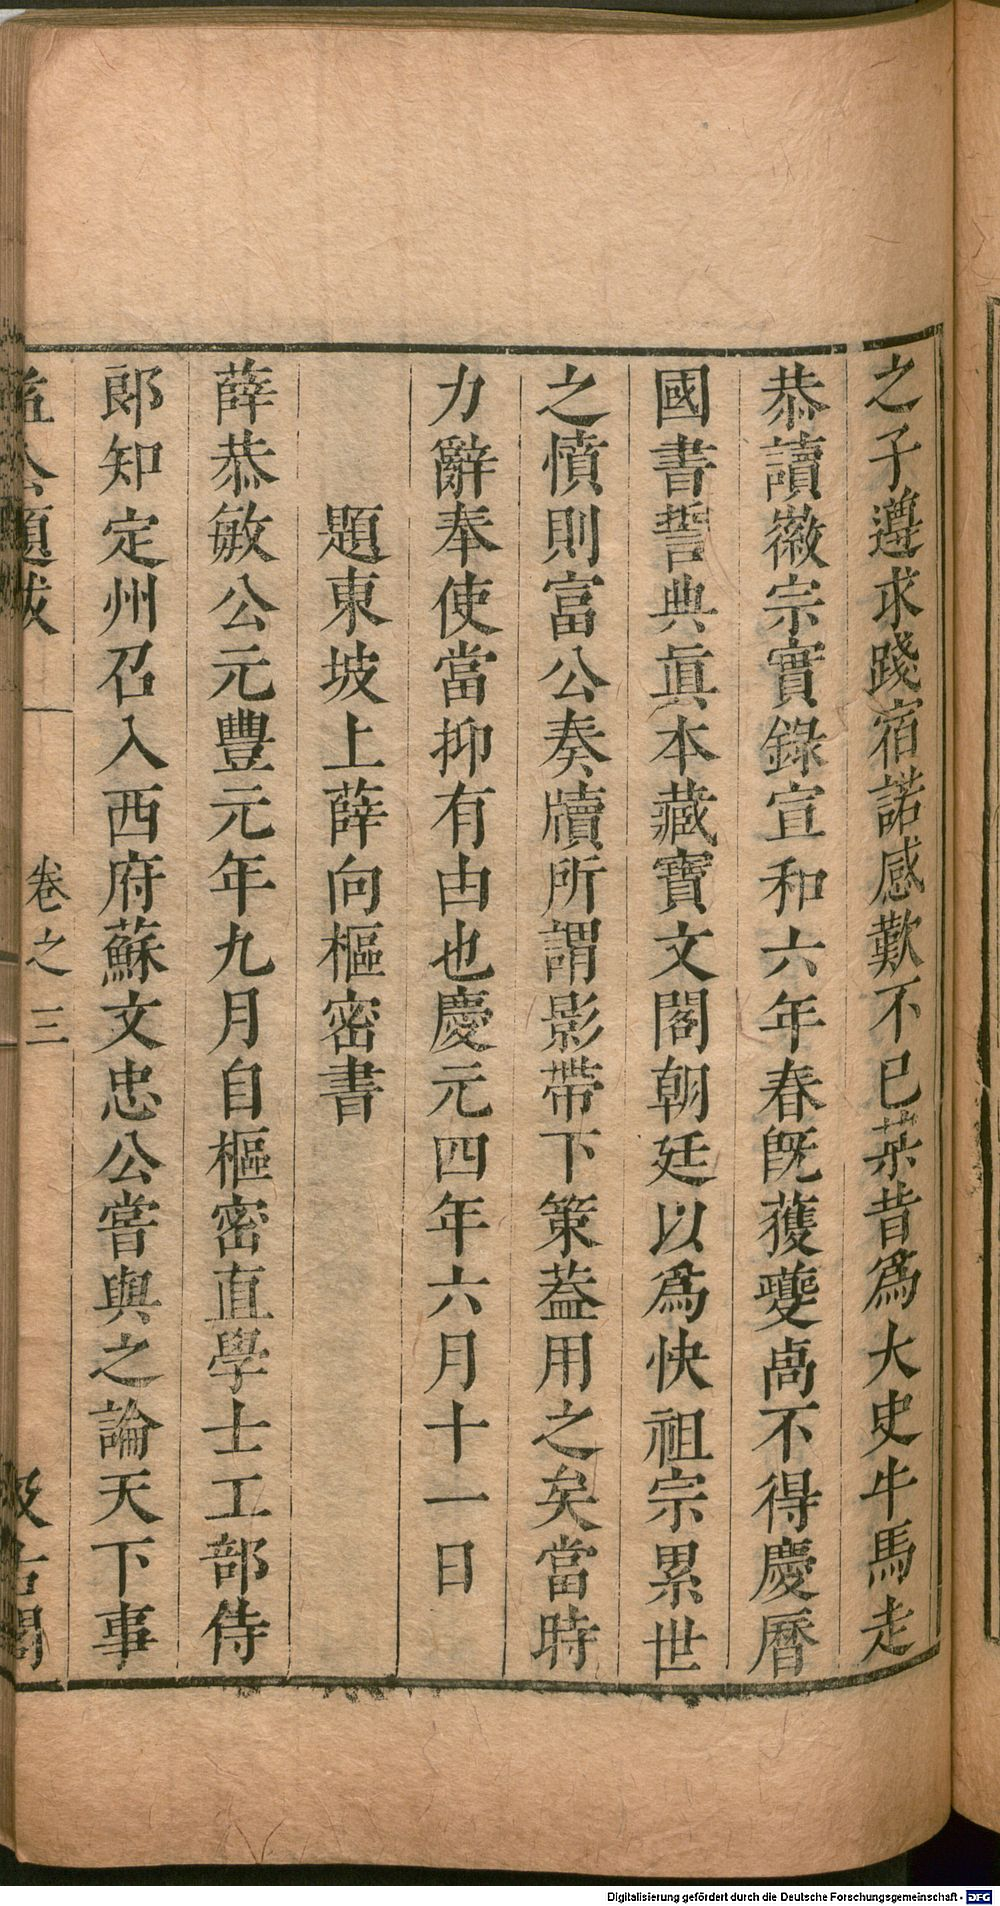 之子遵求踐宿諾感歎不已某昔爲大史牛馬走
恭讀徽宗實錄宣和六年春旣獲夔离不得慶曆
國書誓典眞本藏寶文閣朝廷以爲快祖宗累世
之憤則富公奏牘所謂影帶下策蓋用之矣當時
力辭奉使當抑有由也慶元四年六月十一日
題東坡上薛向樞密書
薛恭敏公元豐元年九月自樞密直學士工部侍
郎知定州召入西府蘇文忠公嘗與之論天下事
益公題跋
卷之三
汲古閣
Digitalisierung gefördert durch die Deutsche Forschungsgemeinschaft - DFG